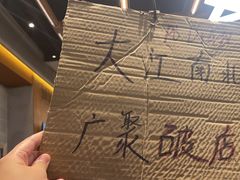 大江南北
广聚破店